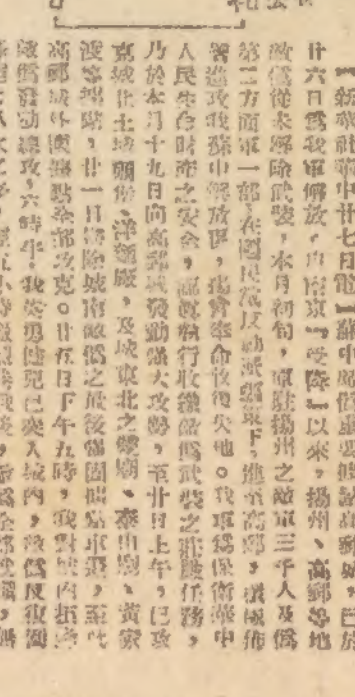 【新華社華中廿七日電】蘇中敵僞重要據點高郵城，已於
廿六日爲我軍解放。自南京『受降』以來，揚州、高郵等地
敵僞從未解除武裝，本月初旬，原駐揚州之敵軍三千人及僞
第二方面軍一部，在國民黨反動派驅策下，進至高郵，積極佈
署進攻我蘇中解放區，揚言奉命收復失地。我軍爲保衛華中
人民生命財產之安全，認眞執行收繳敵僞武裝之莊嚴任務，
乃於本月十九日向高郵城發動強大攻勢，至廿日上午，已攻
克城北土壩碉堡、洋蠟廠，及城東北之 廟、泰山廟、黃家
渡等據點，廿一日掃除城南敵僞之最後強固據點車邏，至此
高郵城外圍據點全部攻克。廿五日下午五時，我對城內拒降
敵僞發動總攻，六時半，我英勇健兒已突入城內，敵僞反復頑